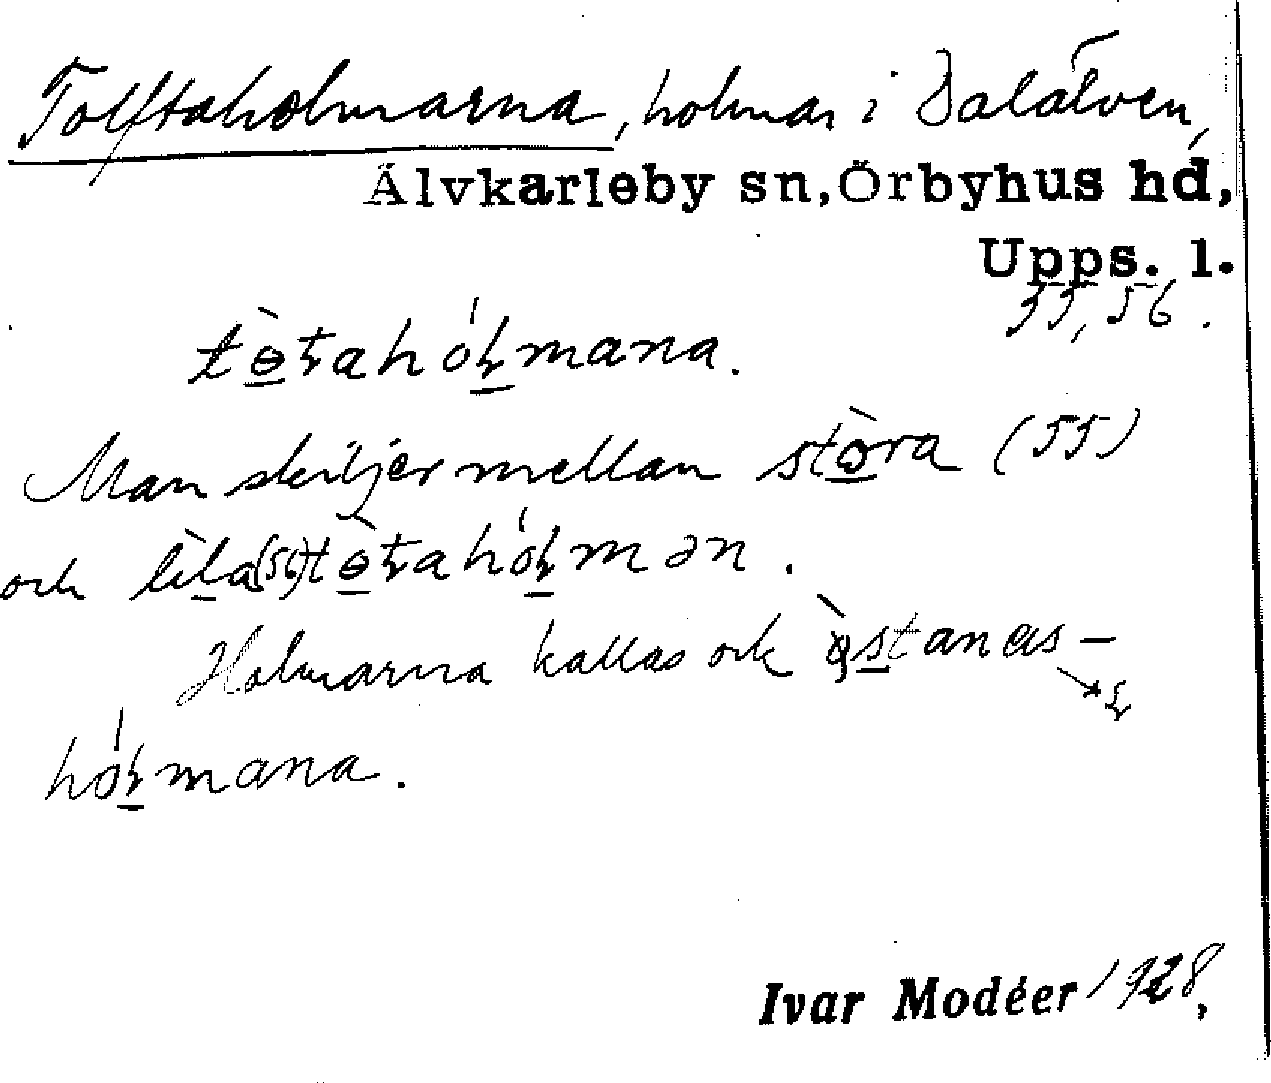 Tolftaholmarna, holmar i Dalälven,
Älvkarleby sn, Örbyhus hd,
Upps. l.
55, 56.
tɵ̀ʈahóɽmana.
Man skiljer mellan stòra (55)
och lìla (56) tɵ̀ʈahóɽmən.
Holmarna kallas ock
hóɽmana.
Ivar Modéer 1928,